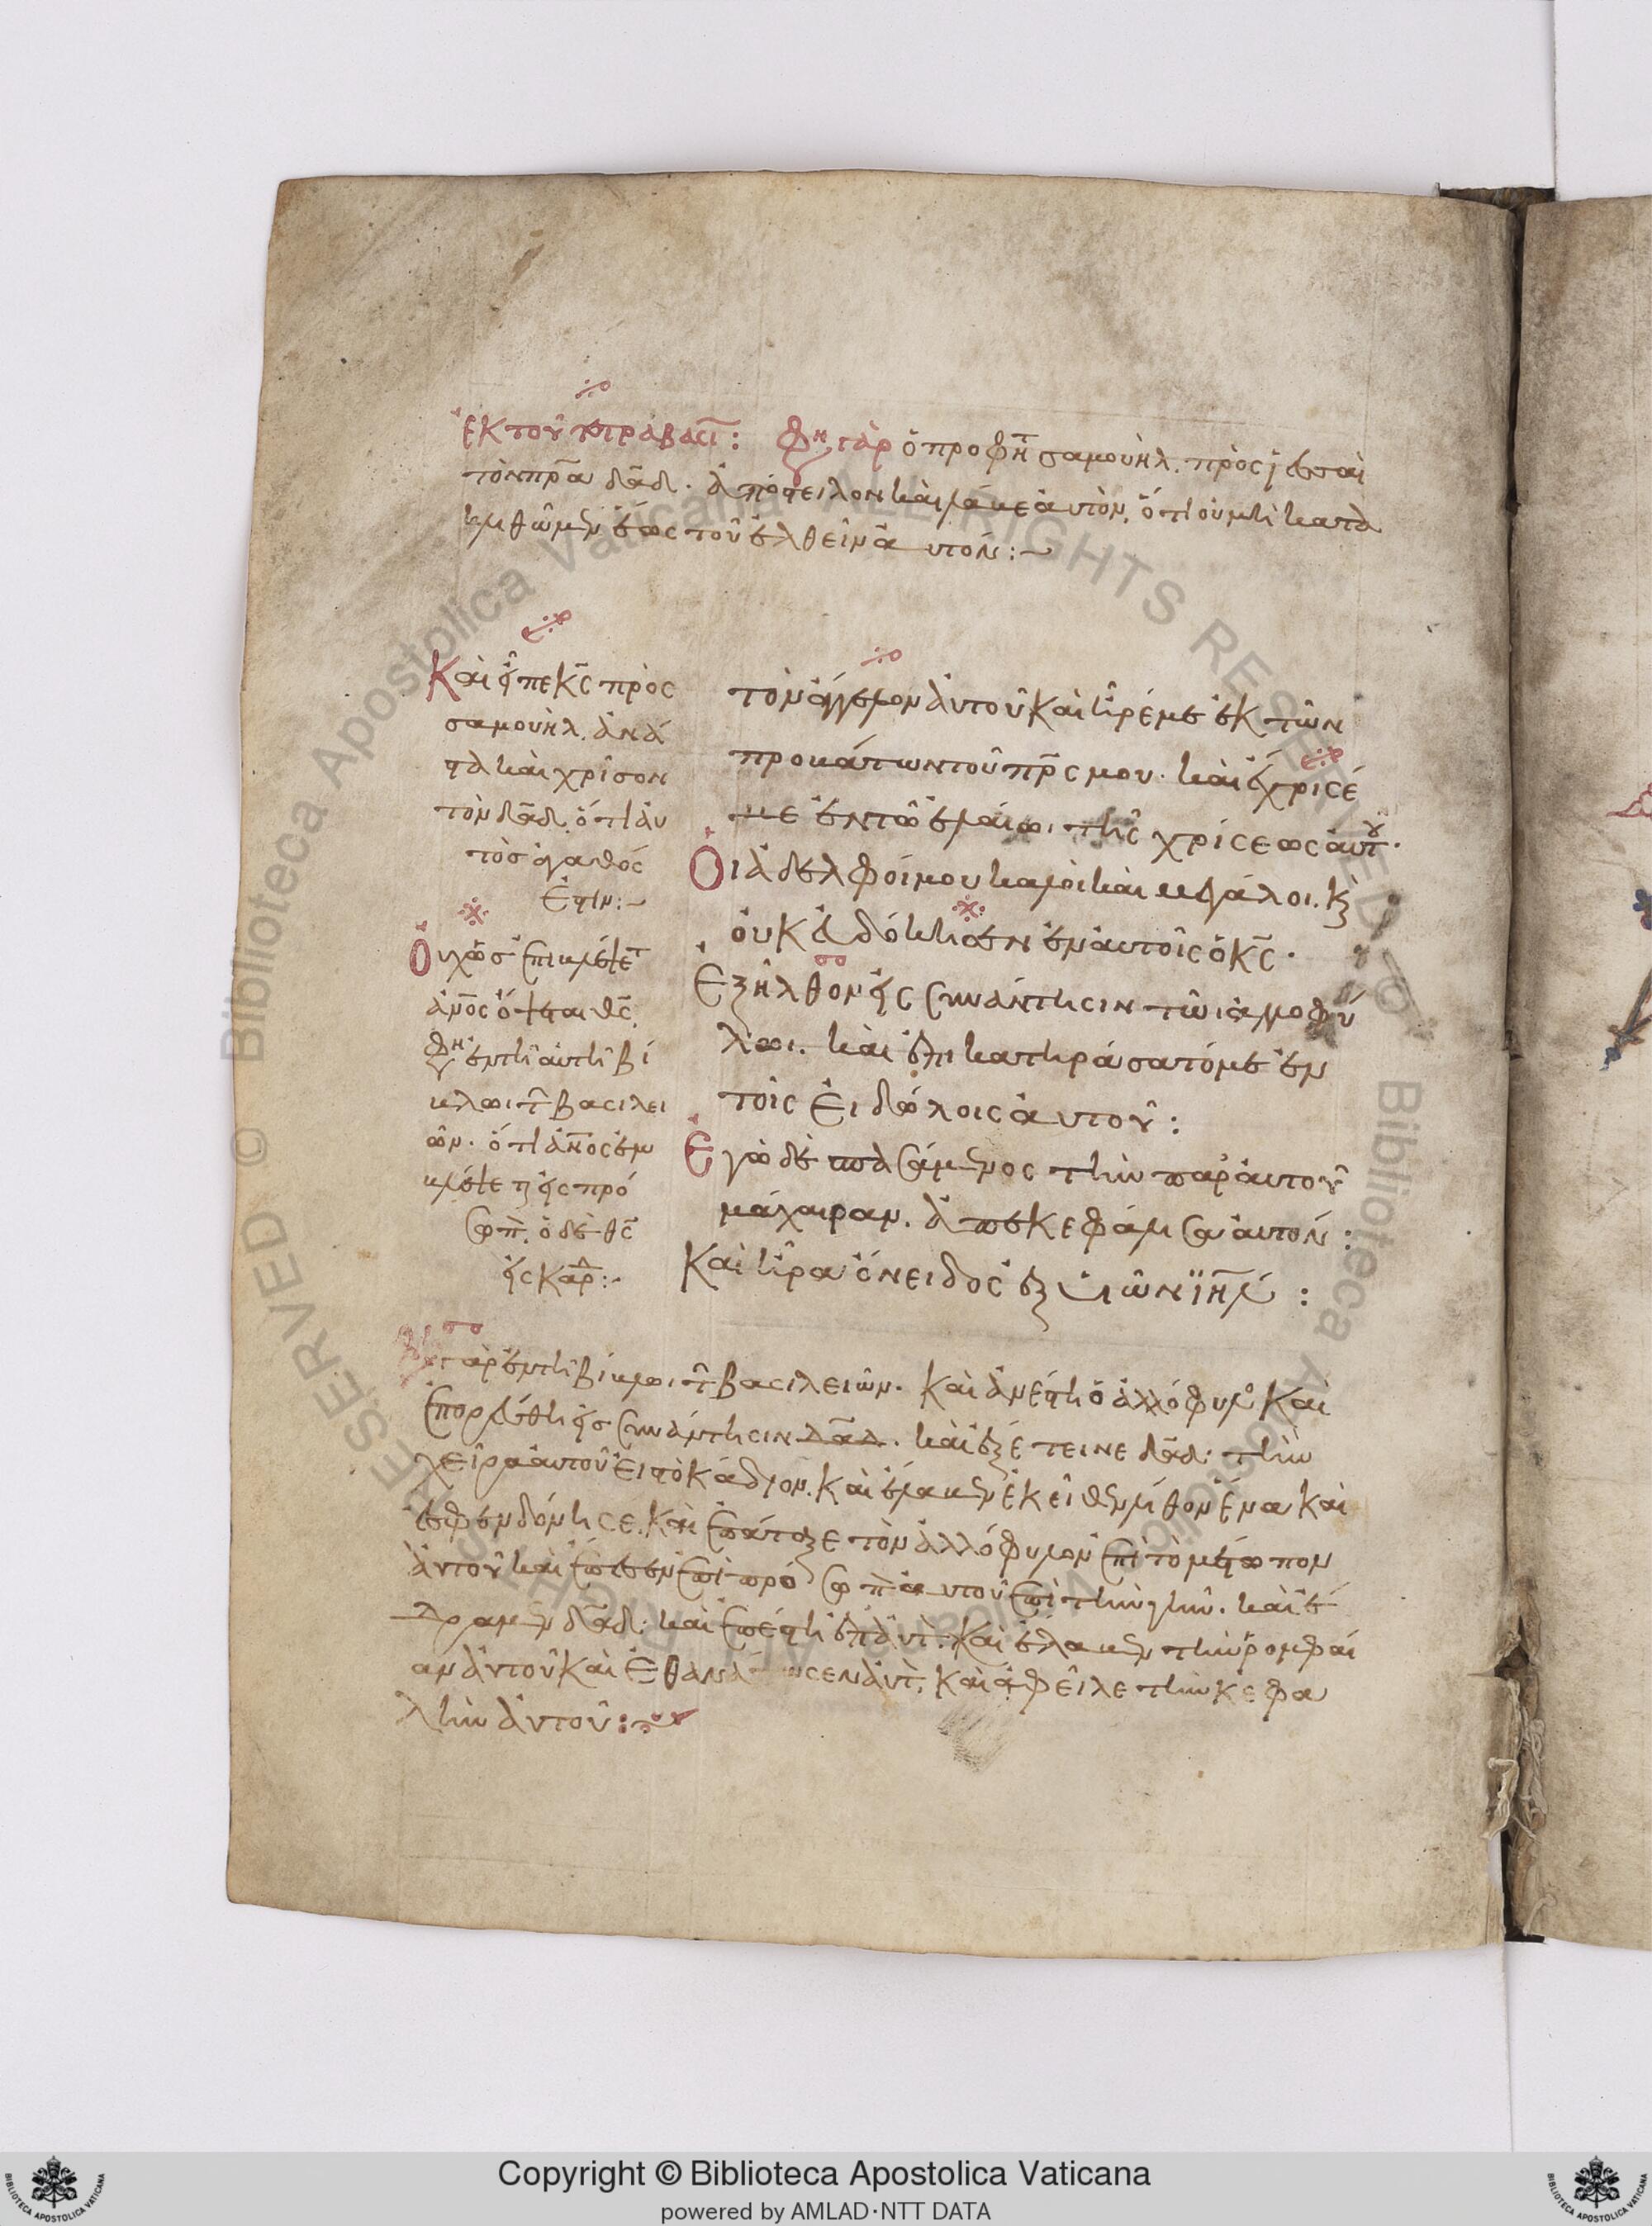 ἐκ τοῦ
φη γὰρ ὁ προφη σαμουὴλ. πρὸς ἰεσσαὶ
τὸν πρ̅α δα̅δ. ἀπόστειλον καὶ λάβε ἀυτὸν, ὅτι οὐ μὴ κατα
κλιθῶμεν ἕως τοῦ ἐλθεῖν ἀυτόν :~
Καὶ εἶπε κ̅ς πρὸς
σαμουὴλ. ἀνά
στα καὶ χρῖσον
τὸν δα̅δ. ὅτι ἀυ
τὸς ἀγαθός
ἐστιν :~
Οὐχ ὡς ἐμβλέπε̅τ
ἀν̅ος ὄψεται θ̅ς.
φη ἐν τῆ ἀυτῆ βί
βλωι τ̅ βασιλει
ῶν. ὅτι ἀν̅ος ἐμ
βλέπει εἰς πρό
σωπ̅. ὁ δὲ θ̅ς
εἰς καρ̅δ :~
τὸν ἄγγελον ἀυτοῦ καὶ ἦρέ με ἐκ τῶν
προβάτων τοῦ πρ̅ς μου. καὶ ἔχρισέ
με ἐν τῶ ἐλαίωι τῆς χρίσεως ἀυτοῦ.
Οἱ ἀδελφοί μου καλοὶ καὶ μεγάλοι. κ̀
οὐκ ἐυδόκησεν ἐν ἀυτοῖς ὁ κ̅ς.
Ἐξῆλθον εἰς συνάντησιν τῶι ἀλλοφύ
λωι. καὶ ἐπικατηράσατό με ἐν
τοῖς εἰδώλοις ἀυτοῦ :
Ἐγὼ δὲ σπασάμενος τὴν παρ' ἀυτοῦ
μάχαιραν. ἀπεκεφάλισα ἀυτόν :
Καὶ ἦρα ὄνειδος ἐξ υἱῶν ἰη̅λ :
γὰρ ἐν τῆ βίβλωι τ̅ βασιλειῶν. Καὶ ἀνέστη ὁ ἀλλόφυλο καὶ
ἐπορεύθη εἰς συνάντησιν δα̅δ. καὶ ἐξέτεινε δα̅δ. τὴν
χεῖρα ἀυτοῦ εἰς τὸ κάδιον. καὶ ἔλαβεν ἐκεῖθεν λίθον ἕνα καὶ
ἐσφενδόνησε. καὶ ἐπάταξε τὸν ἀλλόφυλον ἐπὶ τὸ μέτωπον
ἀυτοῦ καὶ ἔπεσεν ἐπὶ πρόσωπ̅ ἀυτοῦ ἐπὶ τὴν γῆν. καὶ ἔ
δραμεν δα̅δ. καὶ ἐπέστη ἐπ' ἀυτ̀. καὶ ἔλαβεν τὴν ῥομφαί
αν ἀυτοῦ καὶ ἐθανάτωσεν ἀυτ̀. καὶ ἀφεῖλε τὴν κεφα
λὴν ἀυτοῦ :~
Copyright © Biblioteca Apostolica Vaticana
powered by AMLAD·NTT DATA